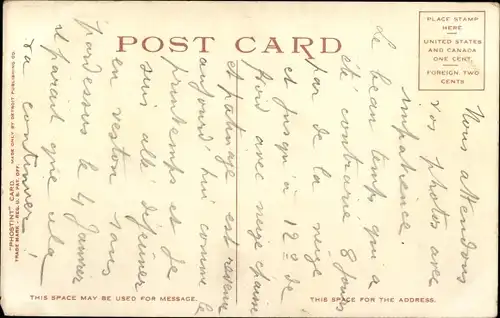 POST CARD
PLACE STAMP
HERE
UNITED STATES
AND CANADA
ONE CENT
FOREIGN, TWO
CENTS
"PHOSTINT" CARD. MADE ONLY BY DETROIT PUBLISHING CO.
TRADE MARK - REG. U. S. PAT. OFF.
THIS SPACE MAY BE USED FOR MESSAGE.
THIS SPACE FOR THE ADDRESS.
Nous attendons
vos photos avec
impatience.
Le beau temps qui a
été contrarié 8 jours
par de la neige
et jusqu'à 12° de
froid avec neige
et patinage est revenu
aujourd'hui comme le
printemps et je
suis allé déjeuner
en veston sans
pardessus le 4 Janvier
il parait que cela
va continuer!